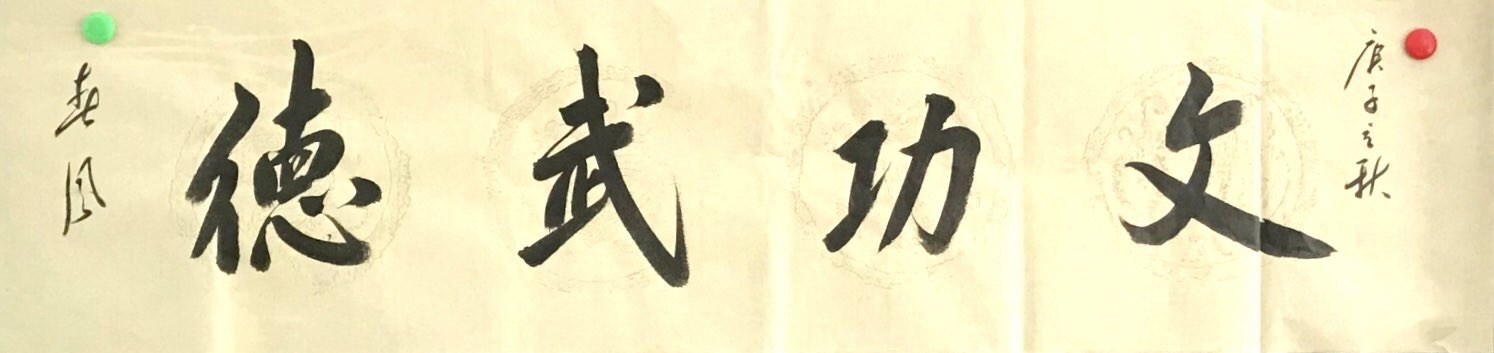 庚子之秋
文功武德
春风